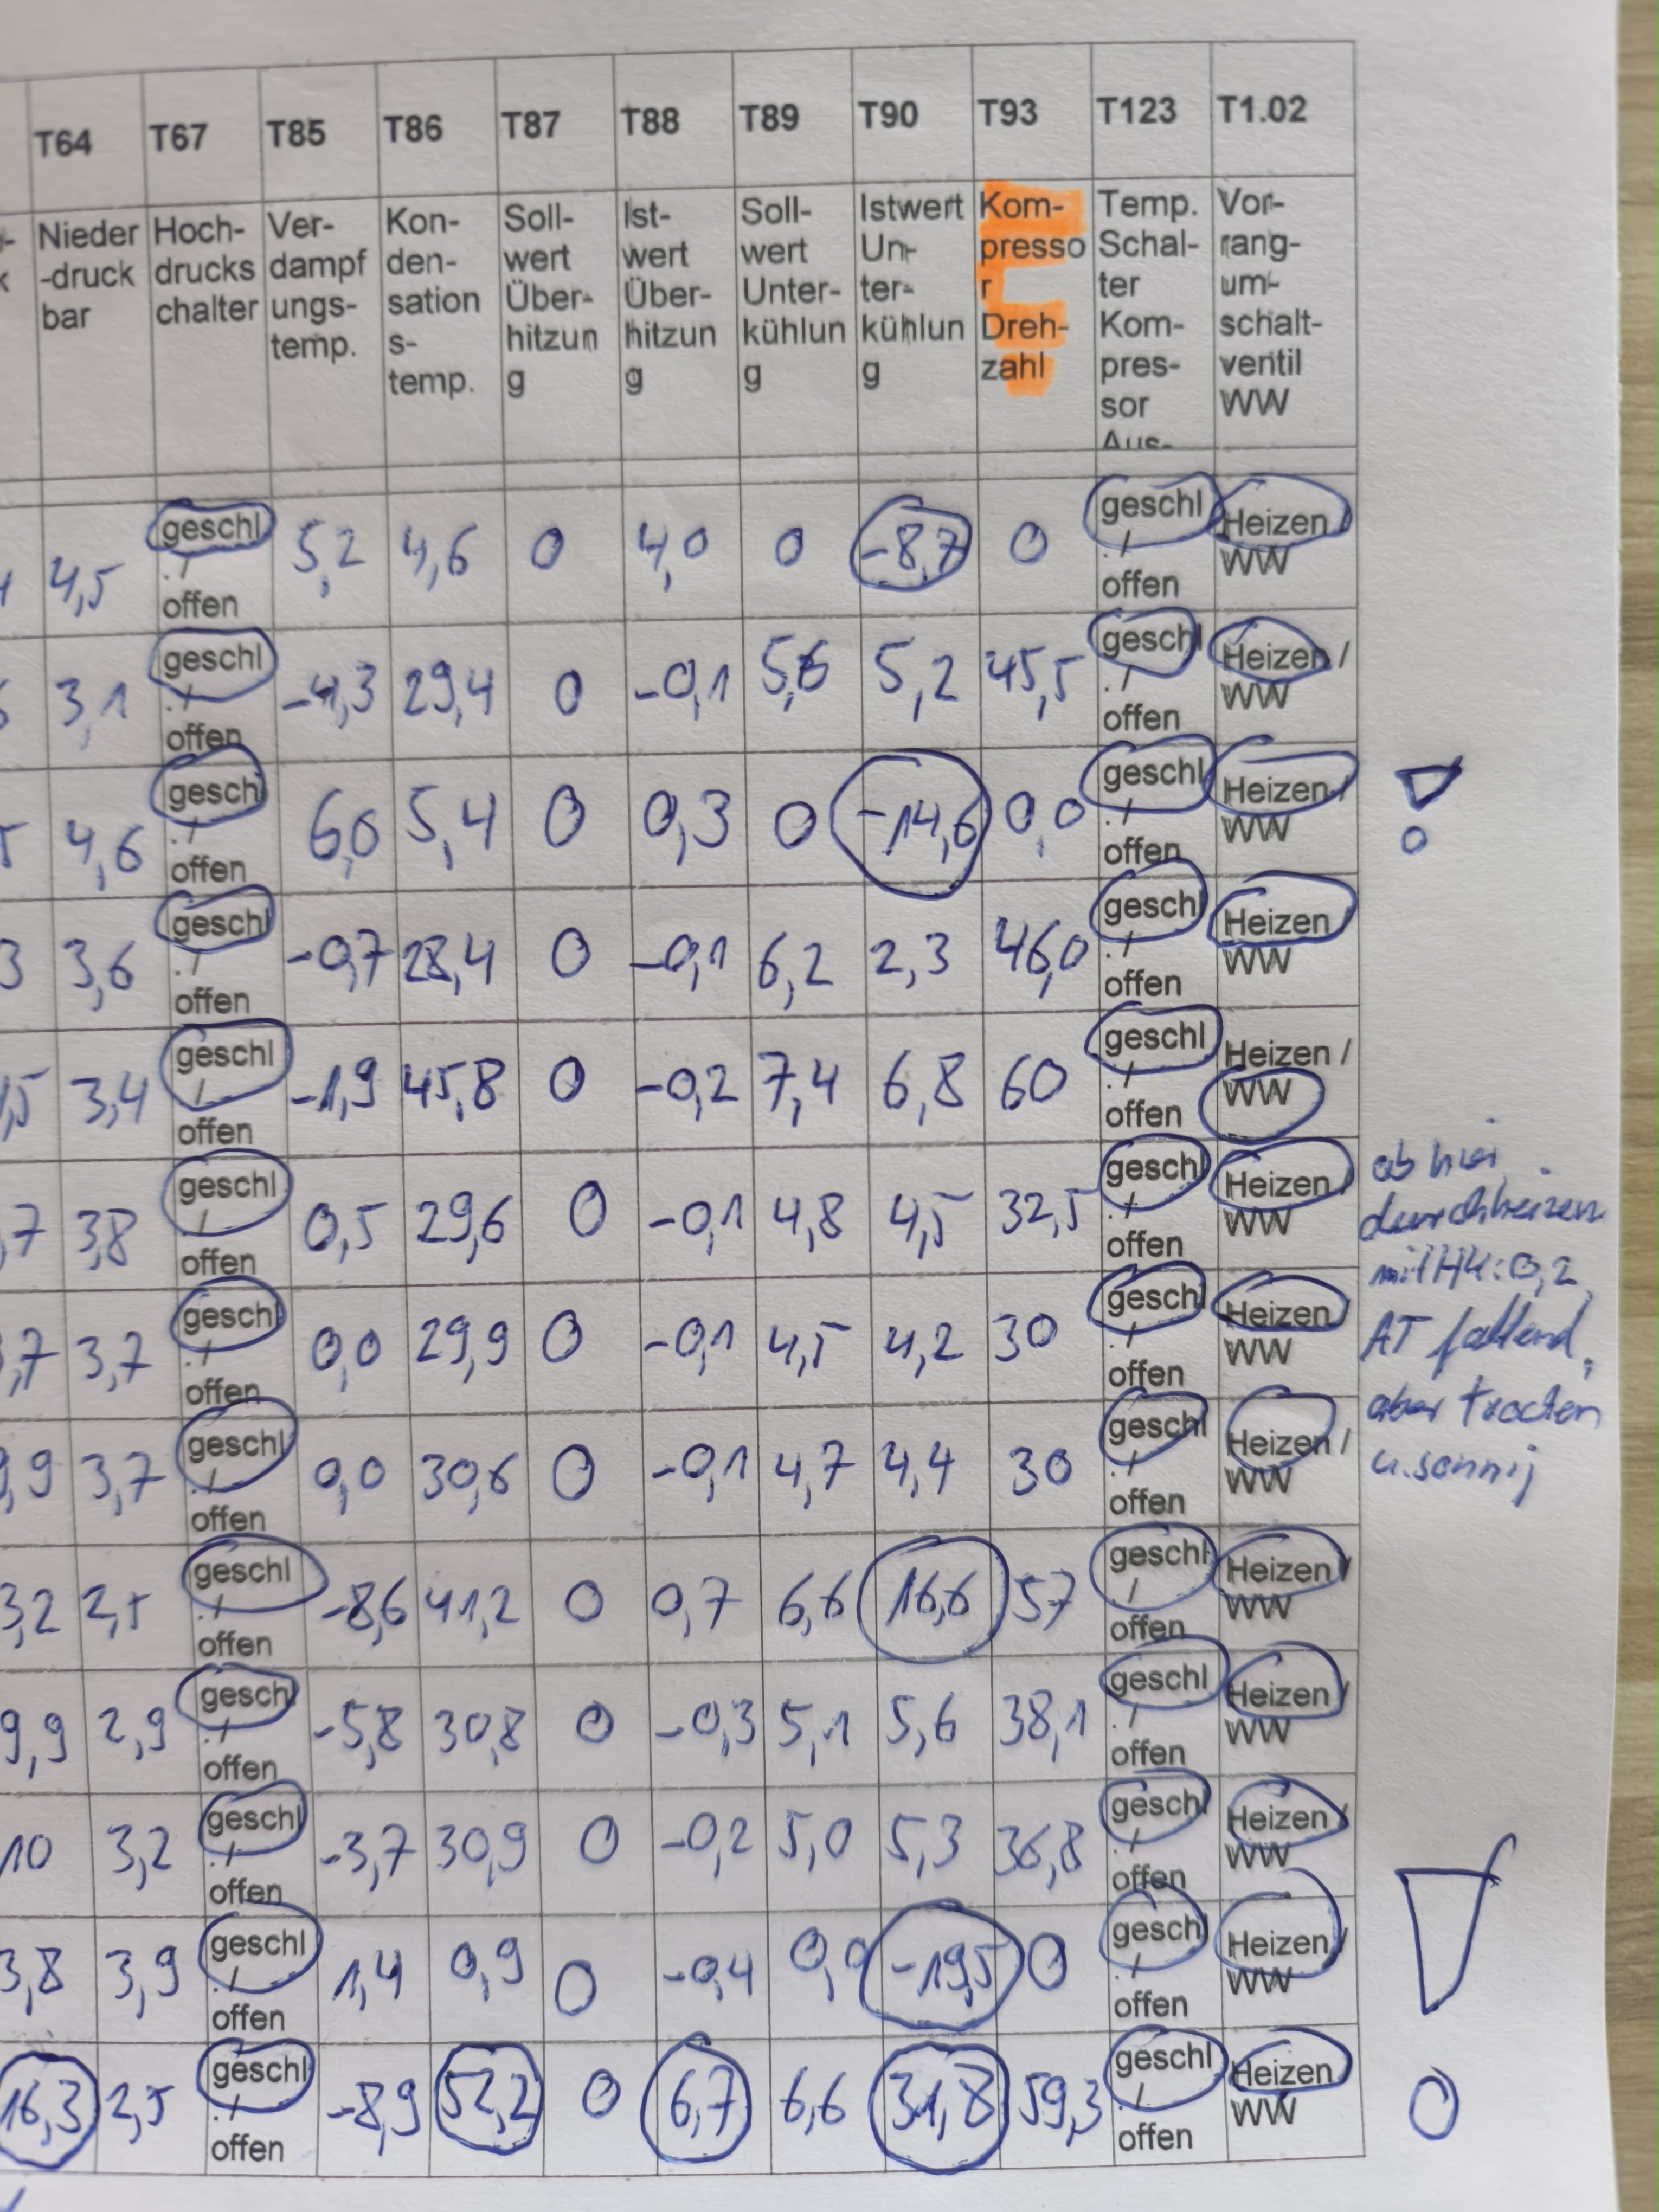 T64 T67 T85 T86 T87 T88 T89 T90 T93 T123 T1.02
Nieder
-druck
bar
Hoch-
drucks
chalter
Ver-
dampf
ungs-
temp.
Kon-
den-
sation
s-
temp.
Soll-
wert
Über-
hitzun
g
Ist-
wert
Über-
hitzun
g
Soll-
wert
Unter-
kühlun
g
Istwert
Un-
ter-
kühlun
g
Kom-
presso
r
Dreh-
zahl
Temp.
Schal-
ter
Kom-
pres-
sor
Aus-
Vor-
rang-
um-
schalt-
ventil
WW
4,5 geschl 5,2 4,6 0 4,0 0 -8,7 0 geschl Heizen /
./ ./ WW
offen offen
3,1 geschl -4,3 29,4 0 -0,1 5,6 5,2 45,5 geschl Heizen /
./ ./ WW
offen offen
4,6 geschl 6,0 5,4 0 0,3 0 -14,6 0,0 geschl Heizen /
./ ./ WW
offen offen
3 3,6 geschl -0,7 28,4 0 -0,1 6,2 2,3 46,0 geschl Heizen /
./ ./ WW
offen offen
,5 3,4 geschl -1,9 45,8 0 -0,2 7,4 6,8 60 geschl Heizen /
./ ./ WW
offen offen
,7 3,8 geschl 0,5 29,6 0 -0,1 4,8 4,5 32,5 geschl Heizen /
./ ./ WW
offen offen
,7 3,7 geschl 0,0 29,9 0 -0,1 4,5 4,2 30 geschl Heizen /
./ ./ WW
offen offen
9,9 3,7 geschl 0,0 30,6 0 -0,1 4,7 4,4 30 geschl Heizen /
./ ./ WW
offen offen
3,2 2,5 geschl -8,6 41,2 0 0,7 6,6 16,6 57 geschl Heizen /
./ ./ WW
offen offen
9,9 2,9 geschl -5,8 30,8 0 -0,3 5,1 5,6 38,1 geschl Heizen /
./ ./ WW
offen offen
10 3,2 geschl -3,7 30,9 0 -0,2 5,0 5,3 36,8 geschl Heizen /
./ ./ WW
offen offen
3,8 3,9 geschl 1,4 0,9 0 -0,4 0,0 -19,5 0 geschl Heizen /
./ ./ WW
offen offen
16,3 2,5 geschl -8,9 52,2 0 6,7 6,6 31,8 59,3 geschl Heizen /
./ ./ WW
offen offen
!
ab hier
durchheizen
mit HK: 0,2
AT fallend,
aber trocken
u. sonnig
!